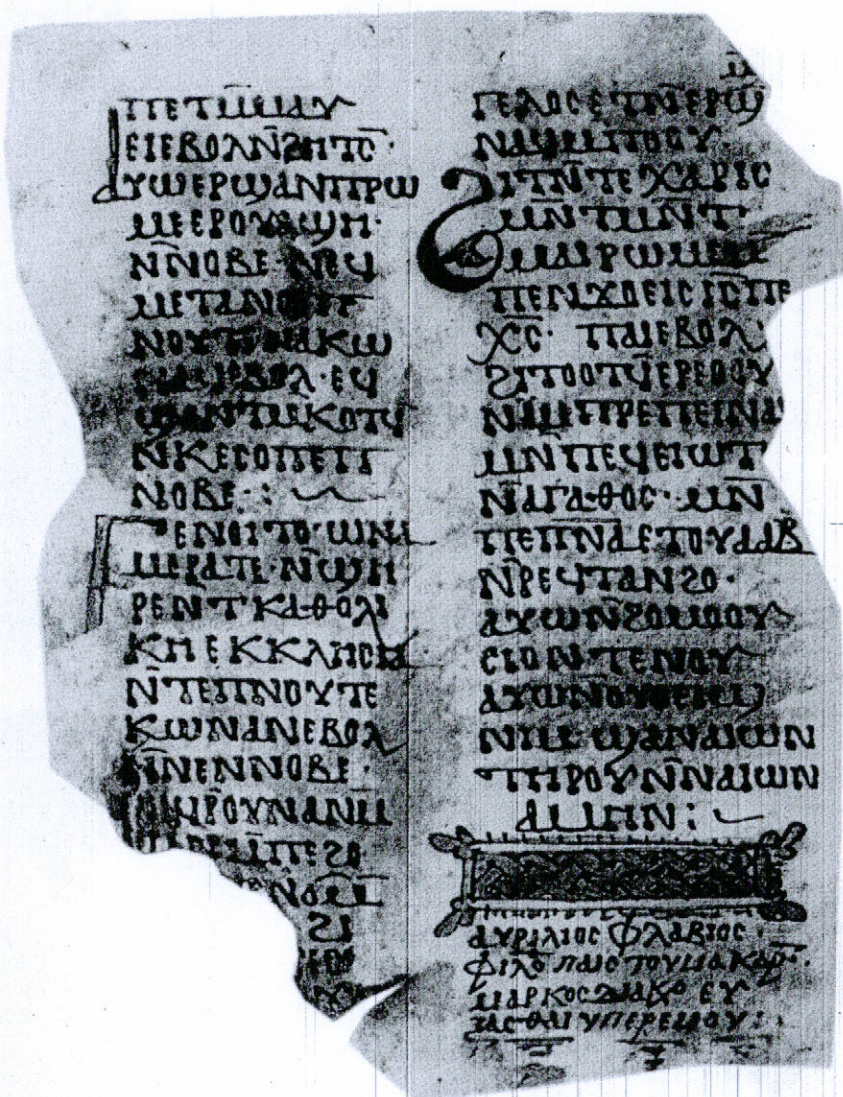 ⲡⲉⲧⲙ̄ⲙⲁⲩ
ⲉⲓⲉⲃⲟⲗⲛ̄ϩⲏⲧⲥ̄·
ⲁⲩⲱⲉⲣϣⲁⲛⲡⲣⲱ
ⲙⲉⲉⲣⲟⲩⲁϣⲏ·
ⲛ̄ⲛⲟⲃⲉ
ⲙⲉⲧⲁⲛⲟⲓ
ⲛⲟⲩⲧⲉⲛⲁⲕⲱ
ⲉⲃⲟⲗ·ⲉϥ
ϣⲁⲛⲧⲙ̄ⲕⲟⲧϥ̄
ⲛ̄ⲕⲉⲥⲟⲡⲉⲡ
ⲛⲟⲃⲉ:
ⲅⲉⲛⲟⲓⲧⲟ·ⲱⲛⲁ
ⲙⲉⲣⲁⲧⲉ·ⲛ̄ϣⲏ
ⲣⲉⲛ̄ⲧⲕⲁⲑⲟⲗⲓ
ⲕⲏⲉⲕⲕⲗⲏⲥⲓⲁ·
ⲛ̄ⲧⲉⲡⲛⲟⲩⲧⲉ
ⲕⲱⲛⲁⲛⲉⲃⲟⲗ
ⲛ̄ⲛⲉⲛⲛⲟⲃⲉ·
ⲛ̄ϥⲣ̄ⲟⲩⲛⲁⲛⲙ̄
ⲙⲡⲉϩⲟ
ϩⲓ
ⲅⲉⲗⲟⲥⲉⲧⲛ̄ⲉⲣϣ
ⲛⲁϣⲙ̄ⲡⲟⲟⲩ·
ϩⲓⲧⲛ̄ⲧⲉⲭⲁⲣⲓⲥ
ⲙⲛ̄ⲧⲙⲛ̄ⲧ·
ⲙⲁⲓⲣⲱⲙⲉⲙ̄
ⲡⲉⲛϫⲟⲉⲓⲥⲓ̅ⲥ̅ⲡⲉ
ⲭ̅ⲥ̅· ⲡⲁⲓⲉⲃⲟⲗ
ϩⲓⲧⲟⲟⲧϥ̄ⲉⲣⲉⲉⲟⲟⲩ
ⲛⲓⲙⲡⲣⲉⲡⲉⲓⲛⲁϥ
ⲙⲛ̄ⲡⲉϥⲉⲓⲱⲧ
ⲛ̄ⲁⲅⲁⲑⲟⲥ·ⲙⲛ̄
ⲡⲉⲡ̅ⲛ̅ⲁ̅ⲉⲧⲟⲩⲁⲁⲃ
ⲛ̄ⲣⲉϥⲧⲁⲛϩⲟ·
ⲁⲩⲱⲛ̄ϩⲟⲙⲟⲟⲩ
ⲥⲓⲟⲛⲧⲉⲛⲟⲩ
ⲁⲩⲱⲛ̄ⲟⲩⲟⲉⲓϣ
ⲛⲓⲙϣⲁⲛⲁⲓⲱⲛ
ⲧⲏⲣⲟⲩⲛ̄ⲛⲁⲓⲱⲛ
ϩⲁⲙⲏⲛ:
ⲁⲩⲣⲓⲗⲓⲟⲥ ⲫⲗⲁⲃⲓⲟⲥ·
ⲫⲓⲗⲟ ⲡⲁⲓⲥ ⲧⲟⲩⲙⲁⲕⲁⲣ·
ⲙⲁⲣⲕⲟⲥ ⲇⲓⲁⲕⲟ ⲉⲩ
ⲝⲁⲥⲑⲁⲓ ⲩⲡⲉⲣ ⲉⲙⲟⲩ: